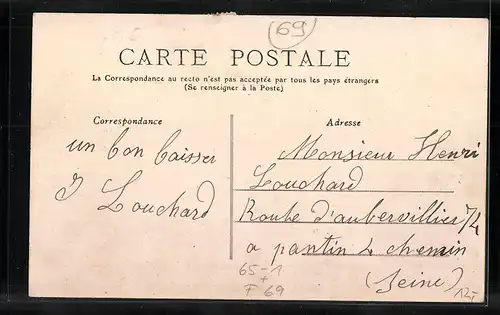 69
CARTE POSTALE
La Correspondance au recto n'est pas acceptée par tous les pays étrangers
(Se renseigner à la Poste)
Correspondance
un bon baiser
J Louchard
Adresse
Monsieur Henri
Louchard
Route d'aubervillier 74
a pantin 4 chemin
(Seine)
65-1
+
F 69